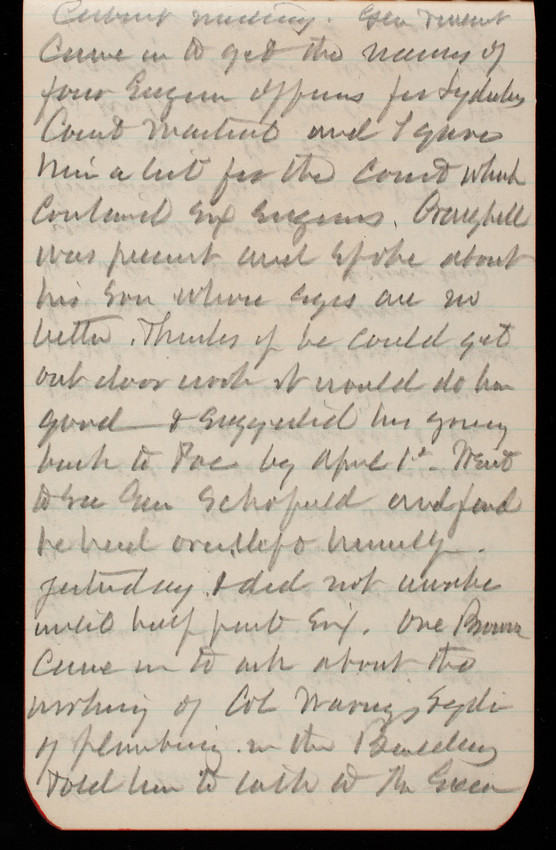 Cabinet meeting. Gen Vincent
Came in to get the names of
four Engineer Officers for
Court Martial and I gave
him a list for the Court which
contained Six Engineers. Craighill
was present and spoke about
his Son whose eyes are no
better. Thinks if he could get
out door work it would do him
good & Suggested his going
back to by April 1st. Went
to See Gen Schofield and found
he had overslept himself
yesterday & did not awake
until half past Six. One Brown
Came in to ask about the
working of Col Warings System
of plumbing in the Building
told him to talk to the